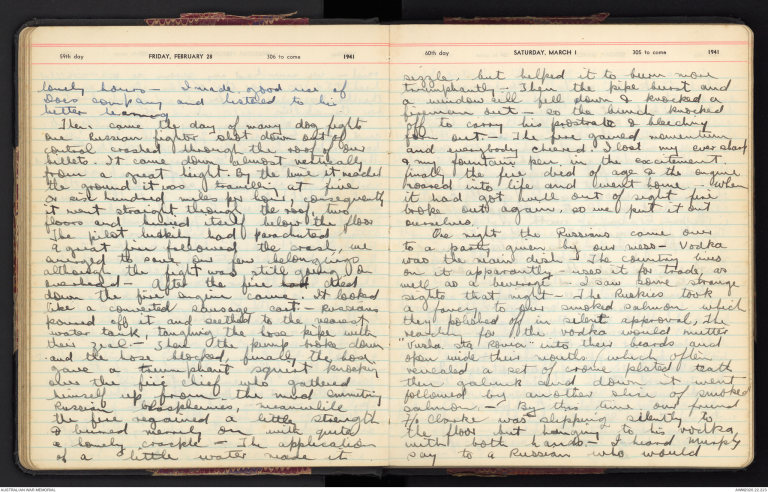 59th day FRIDAY, FEBRUARY 28 306 to come 1941
lonely hours — I made good use of
Docs company and listened to his
better learning
Then came the day of many dog fights
one Russian fighter shot down out of
control crashed through the roof of our
billets. It came down almost vertically
from a great height. By the time it reached
the ground it was travelling at five
or six hundred miles per hour, consequently
it went straight through the roof, two
floors and buried itself below the floor
The pilot luckily had parachuted
A great fire followed the crash, we
managed to save our few belongings
although the fight was still going on
overhead — After the fire had died
down the fire engine came. It looked
like a converted sausage cart — Russians
poured off it and seethed to the nearest
water tank, tangling the hose pipe with
their zeal — Then the pump broke down
and the hose blocked, finally the hose
gave a triumphant squirt knocking
over the fire chief who gathered
himself up from the mud
Russian blasphemies, meanwhile
the fire regained a little strength
& burned merrily on with quite
a lonely crackle — The application
of a little water made it
60th day SATURDAY, MARCH 1 305 to come 1941
sizzle, but helped it to burn more
triumphantly — Then the pipe burst and
a window sill fell down & knocked a
fireman out — so the bunch knocked
off to carry his prostrate & bleeding
form out — The fire gained momentum
and everybody cheered. I lost my ever sharp
& my fountain pen in the excitement.
finally the fire died of age & the engine
roared into life and went home. When
it had got well out of sight fire
broke out again, so we put it out
ourselves.
One night the Russians came over
to a party given by our mess — Vodka
was the main dish — The country lives
on it apparently — uses it for trade, as
well as a beverage — I saw some strange
sights that night — The Ruskies took
a fancy to our smoked salmon which
they polished off in silent approval, Then
reaching for the vodka would mutter
into their beards and
open wide their mouths (which often
revealed a set of crome plated teeth
then galunk and down it went
followed by another slice of smoked
salmon, — By this time our friend
F/o Clarke was slipping silently to
the floor but hanging to his vodka
with both hands — I heard Murphy
say to a Russian who would
AUSTRALIAN WAR MEMORIAL
AWM2020.22.225